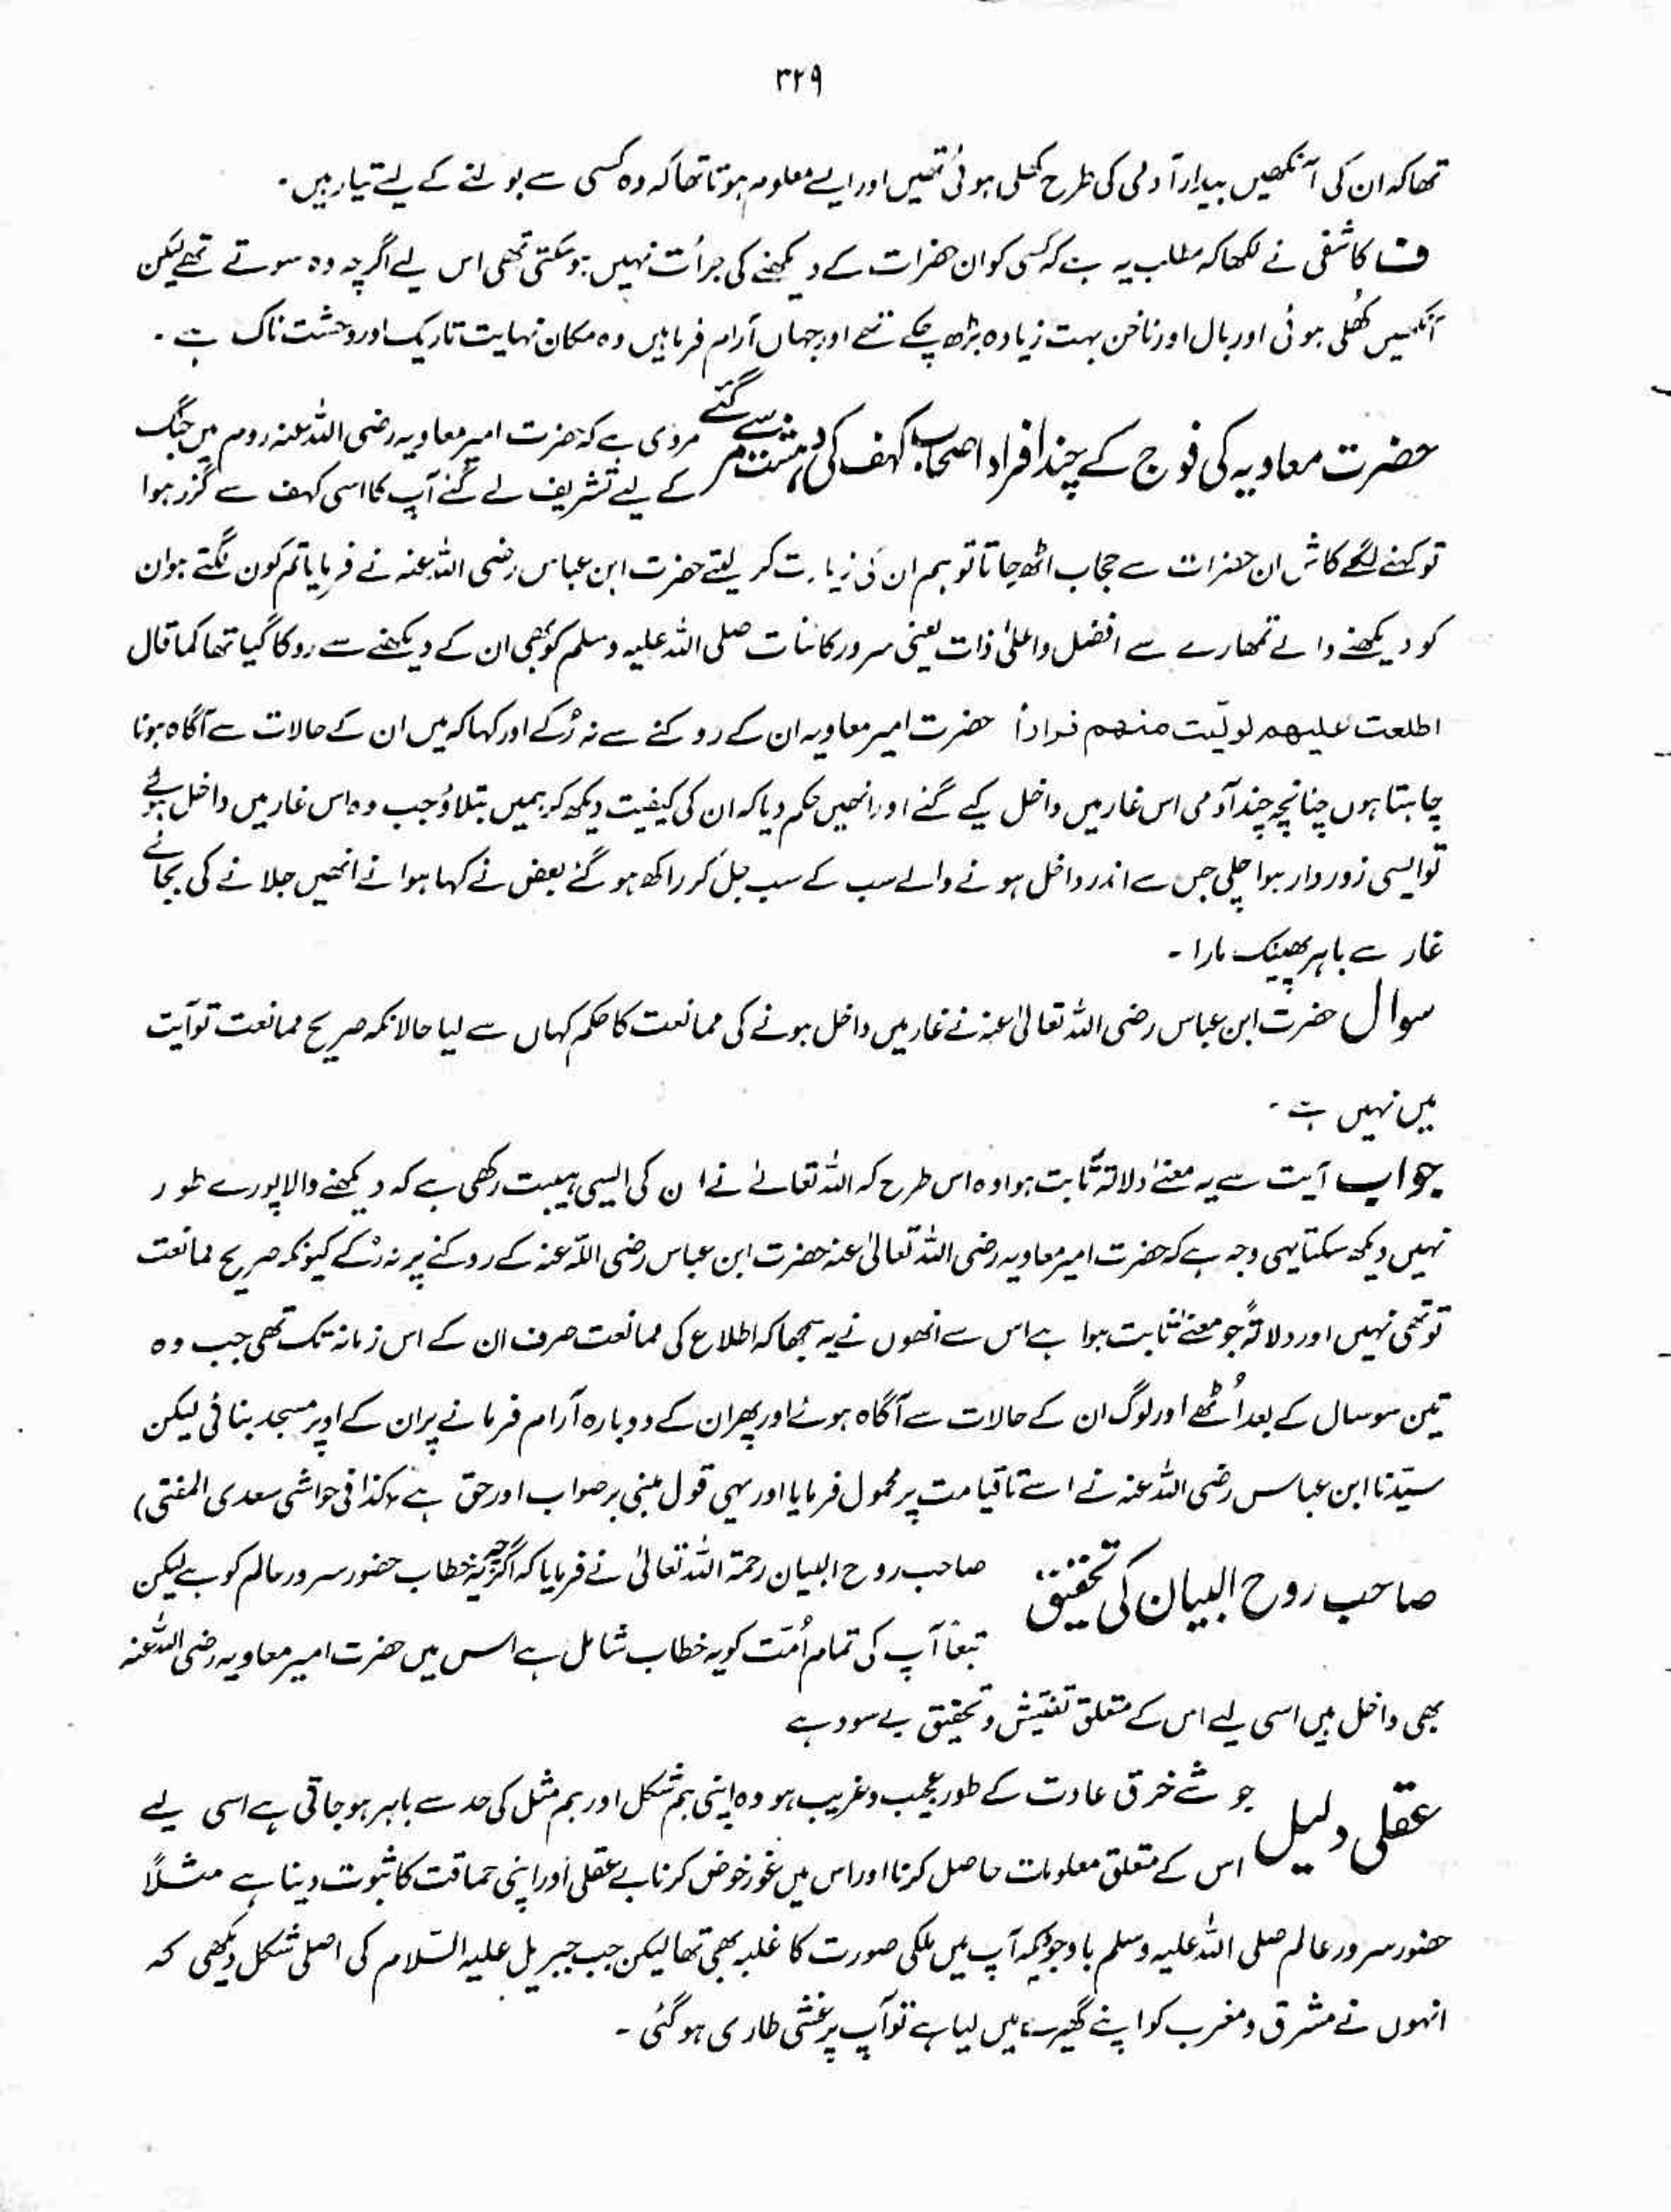 ۳۲۹
تھا کہ ان کی آنکھیں بیدار آدمی کی طرح کھلی ہوئی تھیں اور ایسے معلوم ہوتا تھا کہ وہ کسی سے بولنے کے لیے تیار ہیں۔
ف کاشفی نے لکھا کہ مطلب یہ ہے کہ کسی کو ان حضرات کے دیکھنے کی جرأت نہیں ہو سکتی تھی اس لیے اگرچہ وہ سوتے تھے لیکن
آنکھیں کھلی ہوئی اور بال اور ناخن بہت زیادہ بڑھ چکے تھے اور جہاں آرام فرما ہیں وہ مکان نہایت تاریک اور وحشت ناک ہے۔
حضرت معاویہ کی فوج کے چند افراد اصحاب کہف کی دہشت سے مر گئے مروی ہے کہ حضرت امیر معاویہ رضی اللہ عنہ روم میں جنگ
کے لیے تشریف لے گئے آپ کا اسی کہف سے گزر ہوا
تو کہنے لگے کاش ان حضرات سے حجاب اٹھ جاتا تو ہم ان کی زیارت کر لیتے حضرت ابن عباس رضی اللہ عنہ نے فرمایا تم کون لگتے ہو ان
کو دیکھنے والے تمھارے سے افضل و اعلیٰ ذات یعنی سرور کائنات صلی اللہ علیہ وسلم کو بھی ان کے دیکھنے سے روکا گیا تھا کما قال
اطلعت علیھم لولّیت منھم فراراً حضرت امیر معاویہ ان کے روکنے سے نہ رُکے اور کہا کہ میں ان کے حالات سے آگاہ ہونا
چاہتا ہوں چنانچہ چند آدمی اس غار میں داخل کیے گئے اور انھیں حکم دیا کہ ان کی کیفیت دیکھ کر ہمیں بتلاؤ جب وہ اس غار میں داخل ہوئے
تو ایسی زور دار ہوا چلی جس سے اندر داخل ہونے والے سب کے سب جل کر راکھ ہو گئے بعض نے کہا ہوا نے انھیں جلانے کی بجائے
غار سے باہر پھینک مارا۔
سوال حضرت ابن عباس رضی اللہ تعالیٰ عنہ نے غار میں داخل ہونے کی ممانعت کا حکم کہاں سے لیا حالانکہ صریح ممانعت تو آیت
میں نہیں ہے۔
جواب آیت سے یہ معنےٰ دلالۃً ثابت ہوا وہ اس طرح کہ اللہ تعالےٰ نے ان کی ایسی ہیبت رکھی ہے کہ دیکھنے والا پورے طور
نہیں دیکھ سکتا یہی وجہ ہے کہ حضرت امیر معاویہ رضی اللہ تعالیٰ عنہ حضرت ابن عباس رضی اللہ عنہ کے روکنے پر نہ رُکے کیونکہ صریح ممانعت
تو تھی نہیں اور دلالۃً جو معنےٰ ثابت ہوا ہے اس سے انھوں نے یہ سمجھا کہ اطلاع کی ممانعت صرف ان کے اس زمانہ تک تھی جب وہ
تین سو سال کے بعد اُٹھے اور لوگ ان کے حالات سے آگاہ ہوئے اور پھر ان کے دوبارہ آرام فرمانے پر ان کے اوپر مسجد بنائی لیکن
سیّدنا ابن عباس رضی اللہ عنہ نے اسے تا قیامت پر محمول فرمایا اور یہی قول مبنی بر صواب اور حق ہے (کذا فی حواشی سعدی المفتی)
صاحب روح البیان کی تحقیق صاحب روح البیان رحمۃ اللہ تعالیٰ نے فرمایا کہ اگرچہ یہ خطاب حضور سرور عالم کو ہے لیکن
تبعاً آپ کی تمام اُمّت کو یہ خطاب شامل ہے اس میں حضرت امیر معاویہ رضی اللہ عنہ
بھی داخل ہیں اسی لیے اس کے متعلق تفتیش و تحقیق بے سود ہے
عقلی دلیل جو شے خرق عادت کے طور عجیب و غریب ہو وہ اپنی ہم شکل اور ہم مثل کی حد سے باہر ہو جاتی ہے اسی لیے
اس کے متعلق معلومات حاصل کرنا اور اس میں غور خوض کرنا بے عقلی اور اپنی حماقت کا ثبوت دینا ہے مثلاً
حضور سرور عالم صلی اللہ علیہ وسلم باوجودیکہ آپ میں ملکی صورت کا غلبہ بھی تھا لیکن جب جبریل علیہ السّلام کی اصلی شکل دیکھی کہ
انہوں نے مشرق و مغرب کو اپنے گھیرے میں لیا ہے تو آپ پر غشی طاری ہو گئی۔